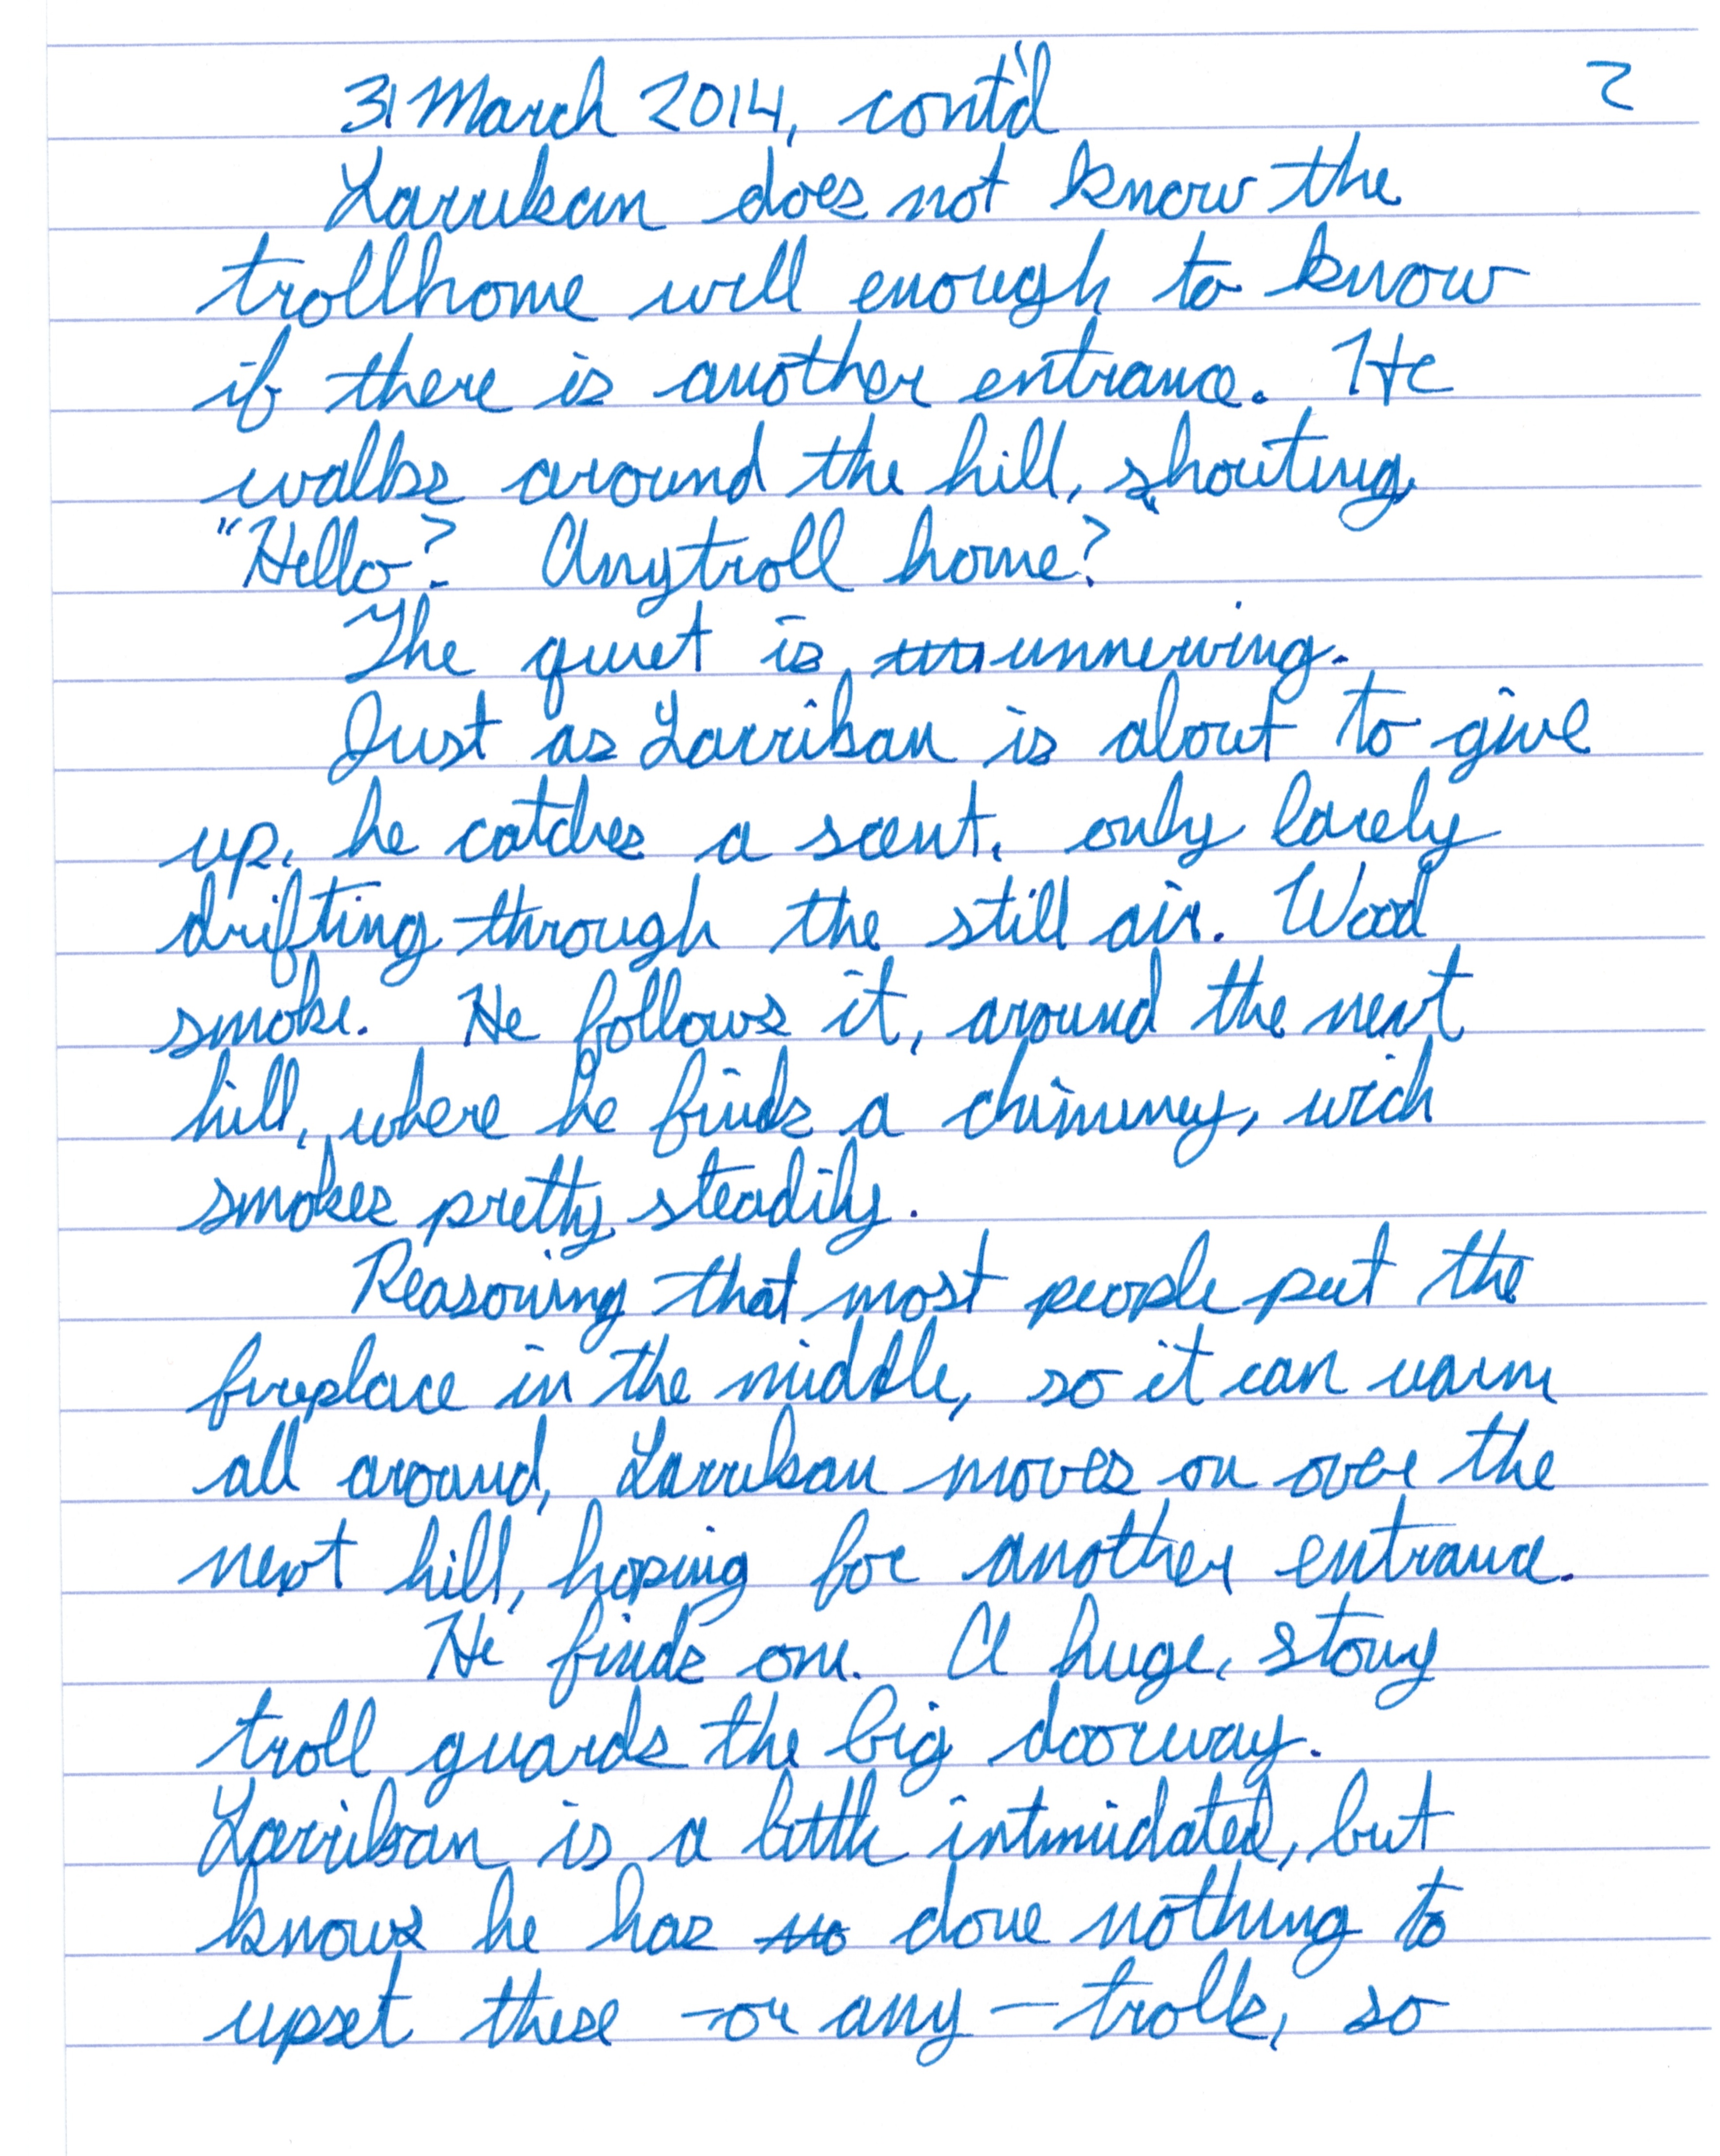 31 March 2014, cont'd 2
Larrikan does not know the
trollhome well enough to know
if there is another entrance. He
walks around the hill, shouting
"Hello? Anytroll home?
The quiet is unnerving.
Just as Larrikan is about to give
up, he catches a scent, only barely
drifting through the still air. Wood
smoke. He follows it, around the next
hill, where he finds a chimney, wich
smokes pretty steadily.
Reasoning that most people put the
fireplace in the middle, so it can warm
all around, Larrikan moves on over the
next hill, hoping for another entrance.
He finds one. A huge, stony
troll guards the big doorway.
Larrikan is a little intimidated, but
knows he has no done nothing to
upset these - or any - trolls, so